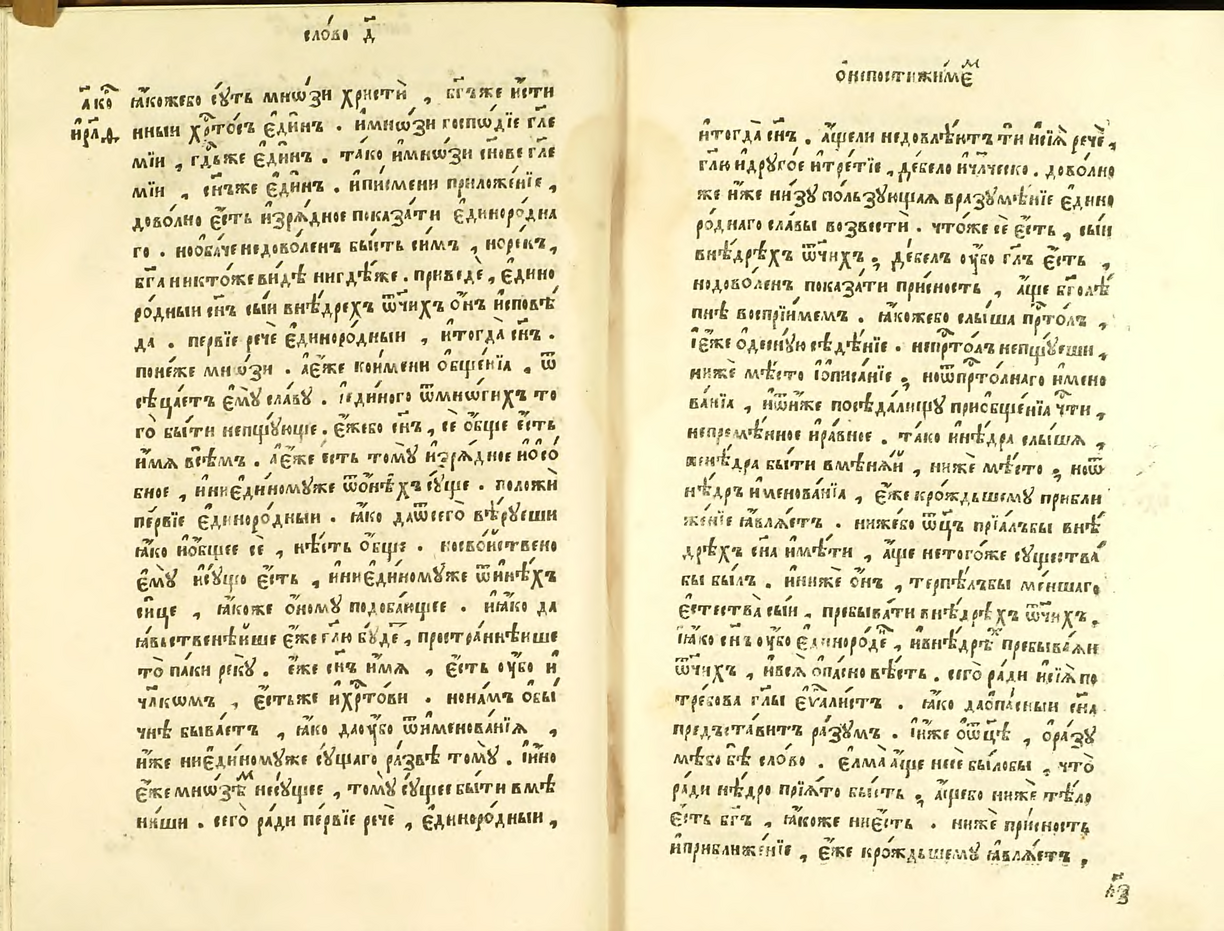 слово д҃
ꙗ҆кожебо сꙋть мнѡ́зи христѝ , бг҃ъже и҆сти
нныи хрⷭ҇то́съ є҆ди́нъ . и҆мнѡ́зи госпѡ́дїе гл҃е
мїи , гдⷭ҇ьже є҆ди́нъ . та́ко и҆мнѡ́зи сн҃ове гл҃е
мїи , сн҃ъже є҆ди́нъ . и҆писмени приложе́нїе ,
дово́лно є҆́сть и҆зрѧ́дное показа́ти є҆диноро́дна
го . нооба́че недово́ленъ бы́сть си́мъ , норе́къ ,
бг҃а никто́же ви́дѣ нигдѣ́же . приведѐ , є҆дино
ро́дныи сн҃ъ сы́и внѣ́дрехъ ѿчихъ ѻ҆́нъ и҆сповѣ́
да . пе́рвїе речѐ є҆диноро́дныи , и҆тогда̀ сн҃ъ .
поне́же мнѡ́зи . а҆є҆́же коимени о҆бще́нїа , ѿ
сѣца́етъ є҆мꙋ̀ сла́вꙋ . і҆еди́ного ѿмнѡ́гихъ то
го̀ бы́ти непщꙋ́юще . є҆́жебо сн҃ъ , сѐ о҆́бще є҆́сть
и҆́мѧ всѣ́мъ . а҆є҆́же есть томꙋ̀ и҆зрѧ́дное и҆осо́
бное , и҆ниєди́номꙋже ѿо҆нѣ́хъ сꙋ́ще . положѝ
пе́рвїе є҆диноро́дныи . ꙗ҆́ко даѿсего̀ вѣ́рꙋеши
ꙗ҆́ко и҆о҆́бщее сѐ , нѣ́сть о҆́бще . носво́йствено
є҆мꙋ̀ и҆сꙋ́що є҆́сть , и҆ниєди́номꙋже ѿи҆нѣ́хъ
си́це , ꙗ҆́коже о҆́номꙋ подоба́ющее . и҆ꙗ҆́ко да
ꙗ҆́вьственѣ́ише є҆́же гл҃ю бꙋ́деⷮ , простра́ннѣише
то̀ па́ки рекꙋ̀ . є҆́же сн҃ъ и҆́мѧ , є҆́сть ᲂу҆́бо и҆
чл҃кѡмъ , є҆́стьже и҆хрⷭ҇то́ви . нона́мъ обы́
чнѣ быва́етъ , ꙗ҆́ко даᲂу҆́бо ѿименова́нїѧ ,
и҆́же ниєди́номꙋже сꙋ́щаго ра́звѣ томꙋ̀ . і҆и҆́но
є҆́же мнѡ́зѣⷨ несꙋ́щее , томꙋ̀ сꙋ́щее бы́ти вмѣ
ни́ши . сего̀ ра́ди пе́рвїе речѐ , є҆диноро́дныи ,
ѻ҆непостижи́мѣⷨ
и҆тогда̀ сн҃ъ . а҆́щели недовлѣ́етъ ти и҆сїѧ̀ речѐ ,
гл҃ю и҆дрꙋго́е и҆тре́тїе , дебело и҆чл҃ческо . дово́лно
же и҆́же ни́зꙋ по́льзꙋющаѧ вразꙋмѣ́нїе є҆дино
ро́днаго сла́вы возвестѝ . что́же сѐ є҆́сть , сы́и
внѣ́дрѣхъ ѿчихъ , дебе́лъ ᲂу҆́бо гл҃ъ є҆́сть ,
нодово́ленъ показа́ти при́сность , а҆́ще бг҃олѣ́
пнѣ воспрїи́мемъ . ꙗ҆́кожебо слы́ша прⷭ҇то́лъ ,
і҆є҆́же одеснꙋ́ю сѣдѣ́нїе . непрⷭ҇то́лъ непщꙋ́еши ,
нижѐ мѣ́сто і҆описа́нїе , ноѿпрⷭ҇то́лнаго и҆мено
ва́нїа , и҆ѿни́же посѣда́лищꙋ приѡбще́нїа чⷭ҇ти ,
непремѣ́нное и҆ра́вное . та́ко и҆нѣ́дра слы́шѧ ,
ненѣ́дра бы́ти вмѣнѧ́й , нижѐ мѣ́сто , ноѿ
нѣ́дръ и҆менова́нїа , є҆́же кро́ждьшемꙋ прибли
же́нїе ꙗ҆влѧ́етъ . ниже́бо ѻ҆ц҃ъ прїѧ́лъбы внѣ́
дрѣхъ сн҃а и҆мѣ́ти , а҆́ще нетого́же сꙋщества̀
бы бы́лъ . и҆нижѐ ѻ҆́нъ , терпѣ́лъбы ме́ншаго
є҆стества̀ сы́и , пребыва́ти внѣ́дрѣхъ ѿчихъ ,
ꙗ҆́ко сн҃ъ ᲂу҆́бо є҆диноро́деⷩ , и҆внѣ́дрѣⷯ пребыва́ѧи
ѿчихъ , и҆всѧ̀ о҆па́сно вѣ́сть . сего̀ ра́ди и҆сїѧ̀ по
тре́бова гл҃ы є҆ѵⷢ҇али́стъ . ꙗ҆́ко даѻ҆па́сныи сн҃а
предъста́витъ ра́зꙋмъ . і҆и́же о҆ѻ҆ц҃ѣ̀ , о҆ра́зꙋ
мѣбо бѣ̀ сло́во . є҆лма̀ а҆́ще несѐ бы́лобы , что̀
ра́ди нѣ́дро прїѧ́то бы́сть , а҆́щебо нижѐ тѣ́ло
є҆́сть бг҃ъ , ꙗ҆́коже ниє҆́сть . нижѐ при́сность
и҆приближе́нїе , є҆́же кро́ждьшемꙋ ꙗ҆влѧ́етъ ,